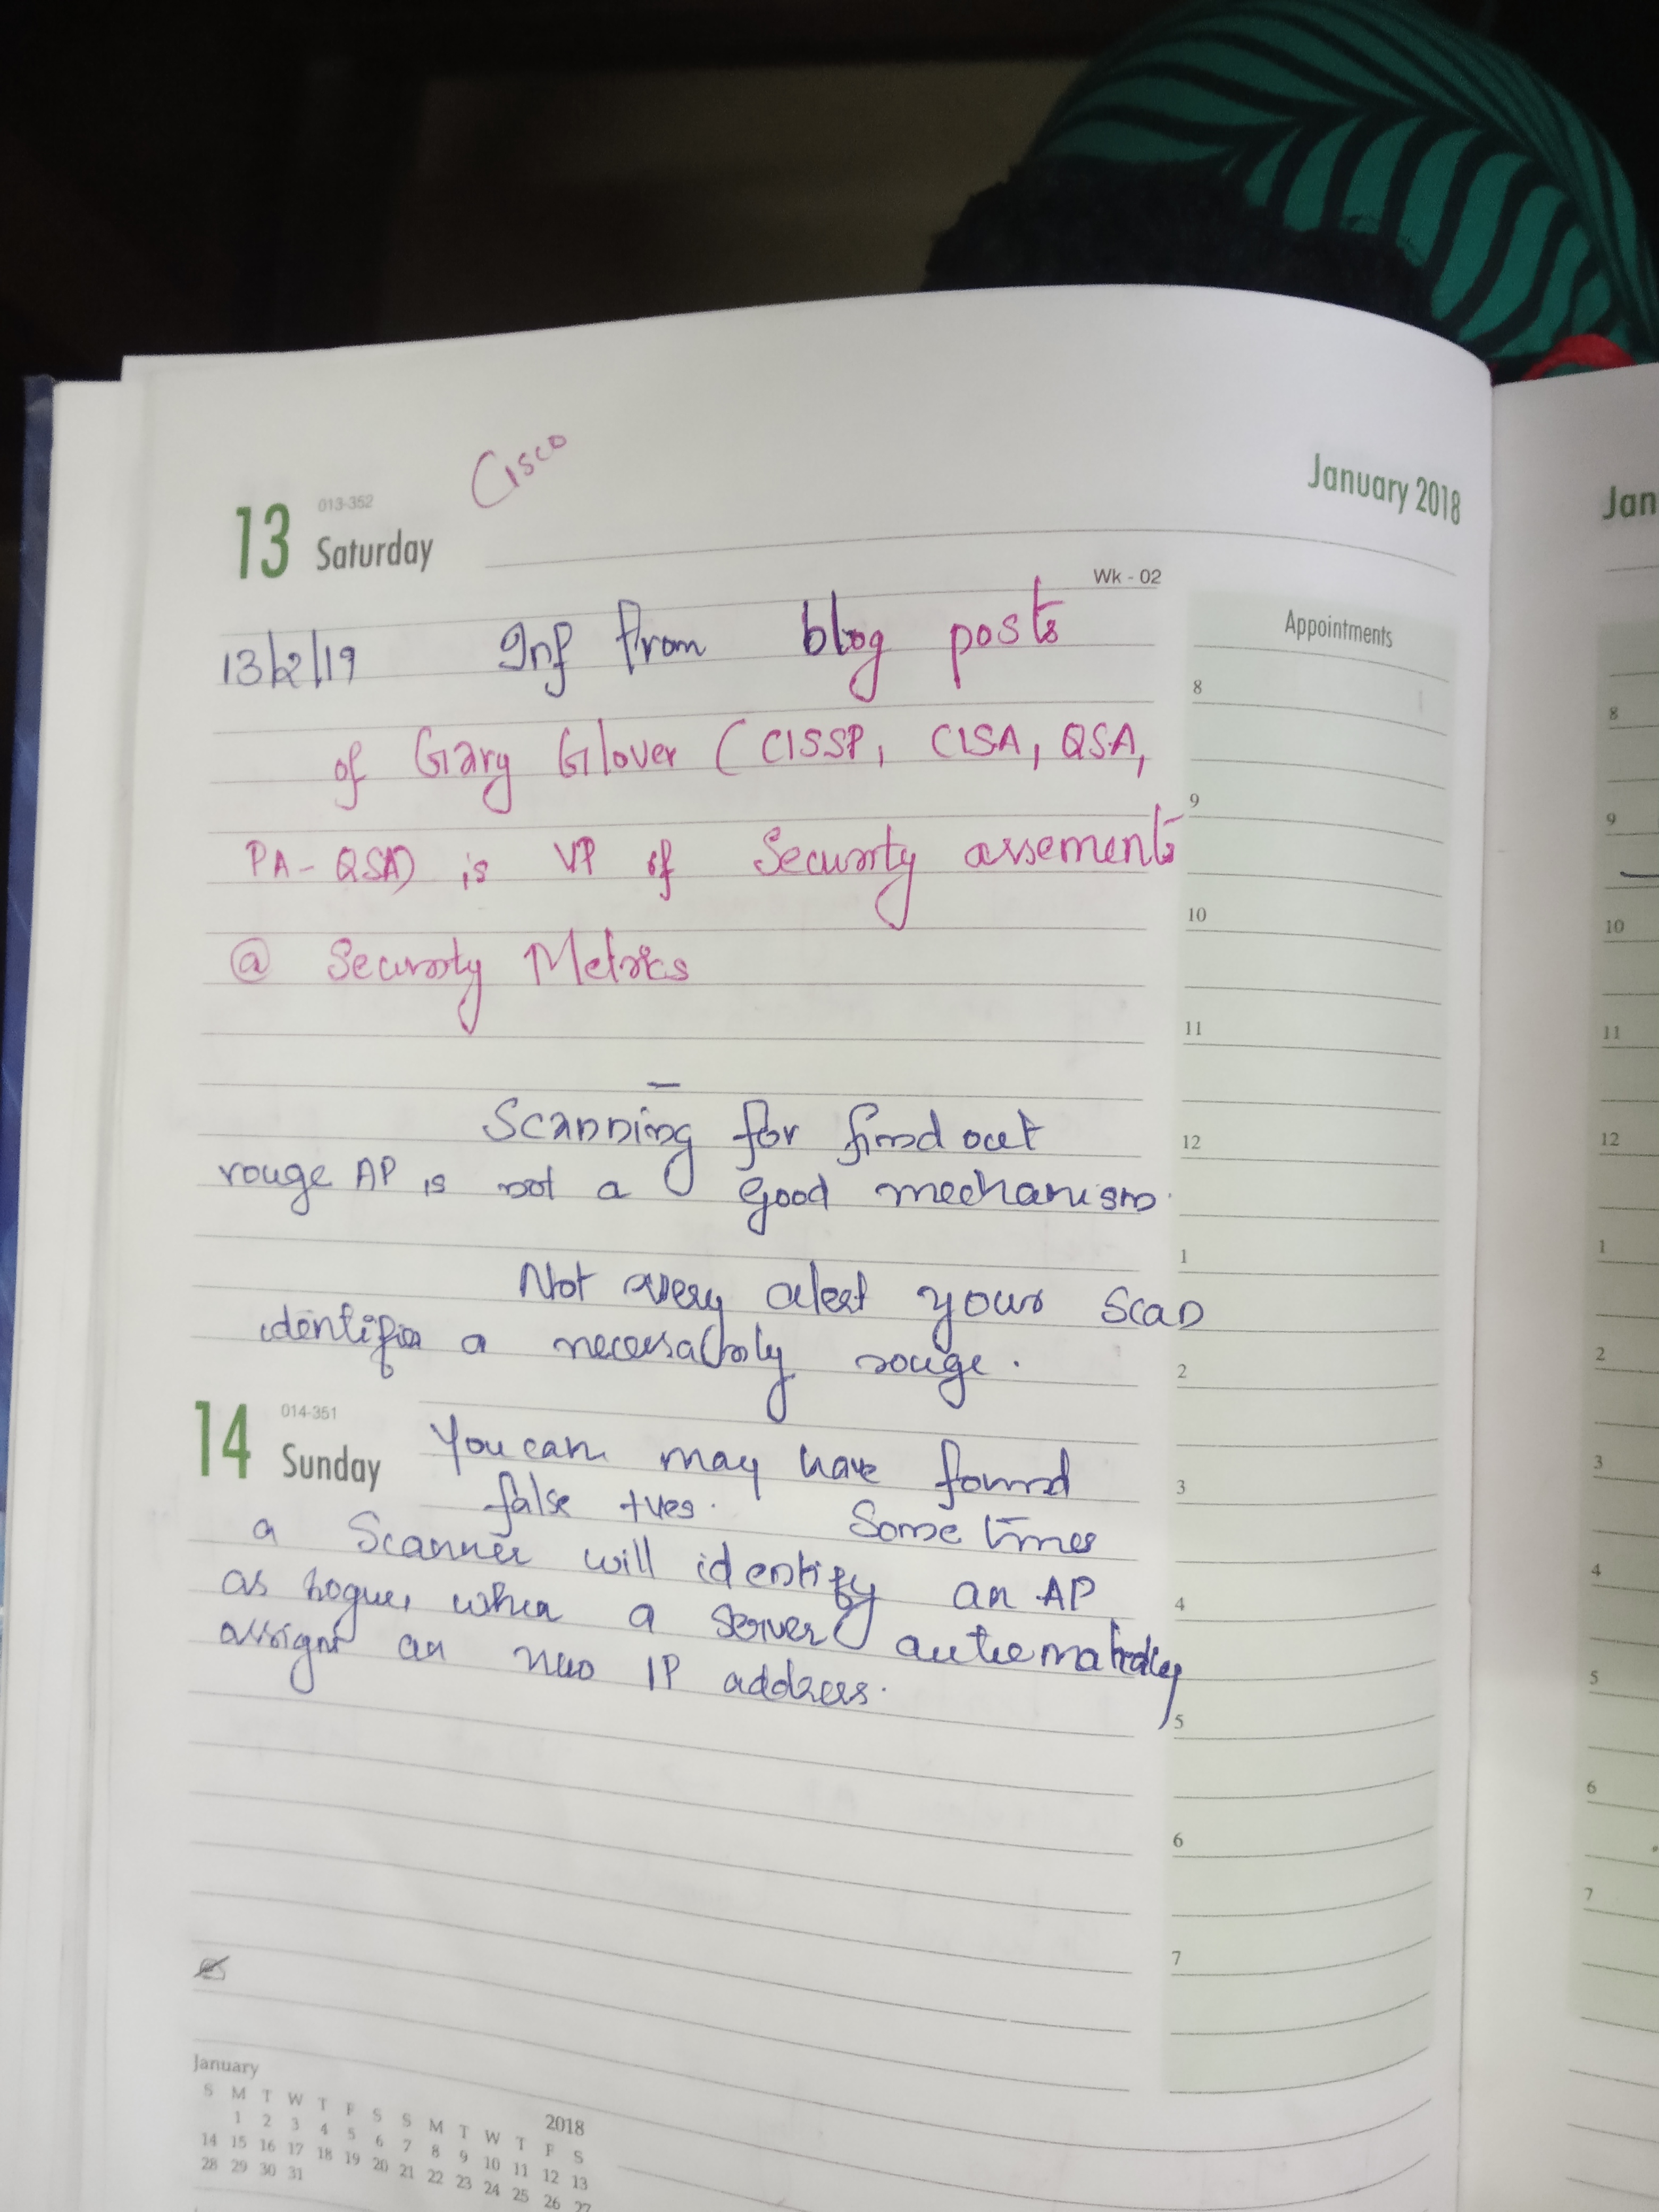 Cisco
January 2018
13 013-352
Saturday
Wk - 02
13/2/19 Inf from blog posts
of Gary Glover (CISSP, CISA, QSA,
PA-QSA) is VP of Security assements
@ Security Metrics
Scanning for find out
rouge AP is not a good mechanism.
Not every alert your scan
identifies a necessarly rouge.
14 014-351
Sunday
You can may have found
false +ves. Sometimes
a Scanner will identify an AP
as rogue, when a server automatically
assigns an new IP address.
Appointments
8
9
10
11
12
1
2
3
4
5
6
7
January 2018
S M T W T F S S M T W T F S
1 2 3 4 5 6 7 8 9 10 11 12 13
14 15 16 17 18 19 20 21 22 23 24 25 26 27
28 29 30 31
Jan
8
9
10
11
12
1
2
3
4
5
6
7